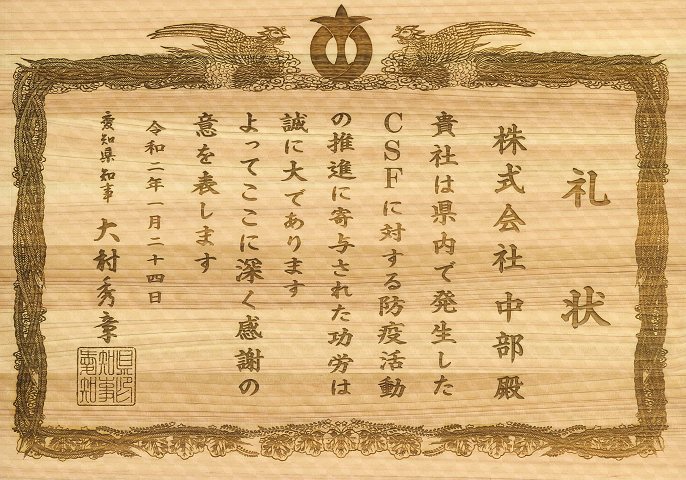 礼状
株式会社 中部殿
貴社は県内で発生した
CSFに対する防疫活動
の推進に寄与された功労は
誠に大であります
よってここに深く感謝の
意を表します
令和二年一月二十四日
愛知県知事 大村秀章